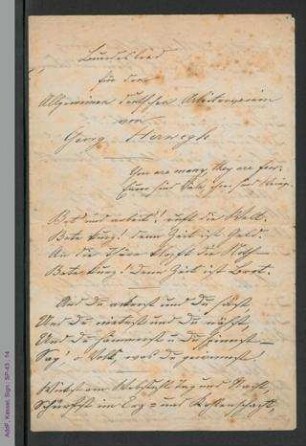 Bundeslied
für den
Allgemeinen deutschen Arbeiterverein
von
Georg Herwegh
You are many, they are few
Bet' und arbeit'! ruft die Welt,
Bete kurz! denn Zeit ist Geld.
An die Thüre klopft die Noth –
Bete kurz! denn Zeit ist Brot.
Und du ackerst und du säst,
Und du nietest und du nähst,
Und du hämmerst u. du spinnst –
Sag' o Volk, was du gewinnst!
Wirkst am Webstuhl Tag und Nacht,
Schürfst im Erz- und Kohlenschacht,
AddF, Kassel, Sign.: SP-45 ; 14